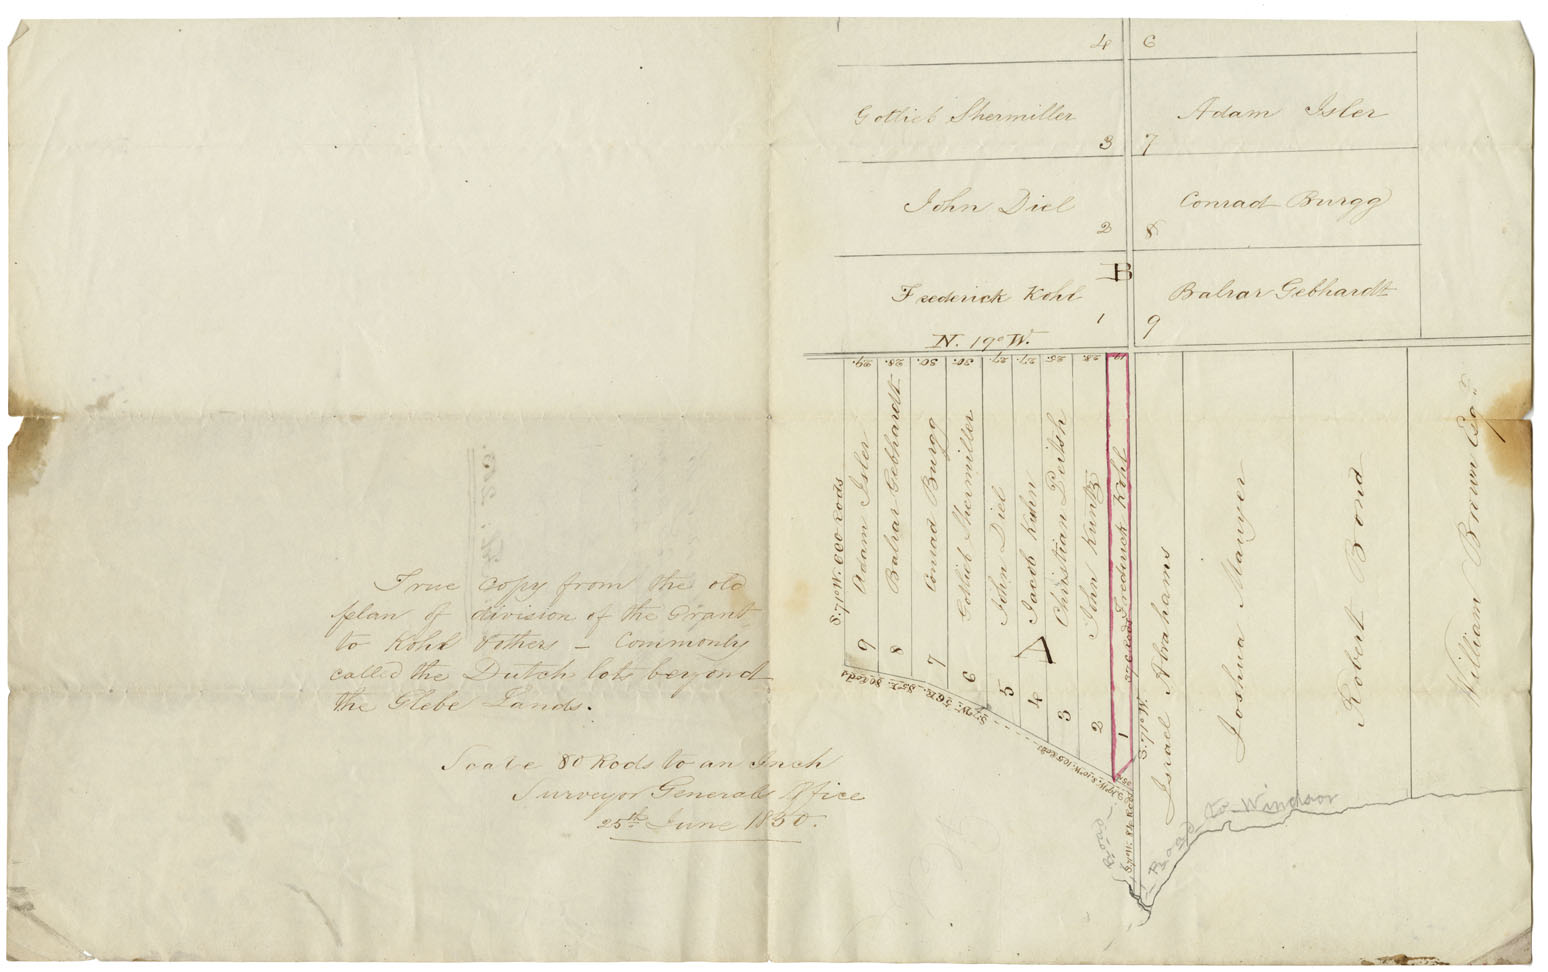 4 6
Gotlieb Shermiller 3
7 Adam Isler
John Diel 2
8 Conrad Burgg
B
Frederick Kohl 1
9 Balsar Gebhardt
N. 19° W.
29. 28. 30. 30. 27. 27. 25. 28.
S. 71° W. 600 rods
Adam Isler 9
Balsar Gebhardt 8
Conrad Burgg 7
Gotlieb Shermiller 6
John Diel 5
Jacob Kuhn 4
A
Christian Peitsh 3
John Kuntz 2
Frederick Kohl 1
376 rods
S. 71° W.
Israel Abrahams
Joshua Mauger
Robert Bond
William Brown Esqr.
80 Rods
S. 71° W. 84 Rods
Road
Road to Windsor
True copy from the old
plan of division of the Grant
to Kohl & others – Commonly
called the Dutch lots beyond
the Glebe Lands.
Scale 80 Rods to an Inch
Surveyor Generals Office
25th June 1850.